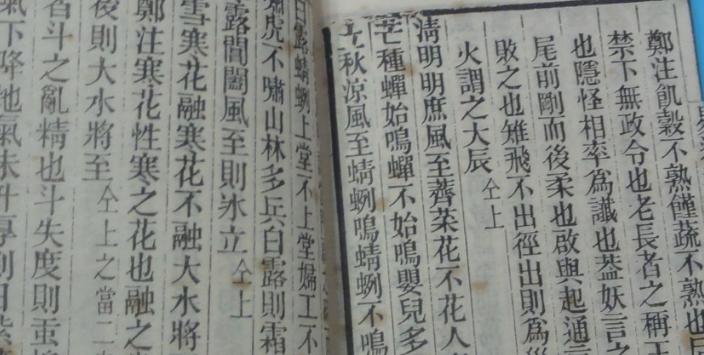 鄭注飢穀不熟饉蔬不熟也
禁下無政令也老長者之稱
也隱怪相率為讖也葢妖言之
尾前剛而後柔也啟與起通
敗之也雉飛不出徑出則為
火謂之大辰仝上
清明明庶風至薺菜花不花人
芒種蟬始鳴蟬不始鳴嬰兒多
立秋涼風至蜻蛚鳴蜻蛚不鳴
白露蜻蛚上堂不上堂婦工不
嘯虎不嘯山林多兵白露則霜
露閶闔風至則氷立仝上
雪寒花融寒花不融大水將
鄭注寒花性寒之花也融之
後則大水將至仝上之當二
者斗之亂精也斗失度則
氣下降地氣未升專則日紫